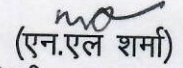 (एन.एल शर्मा)